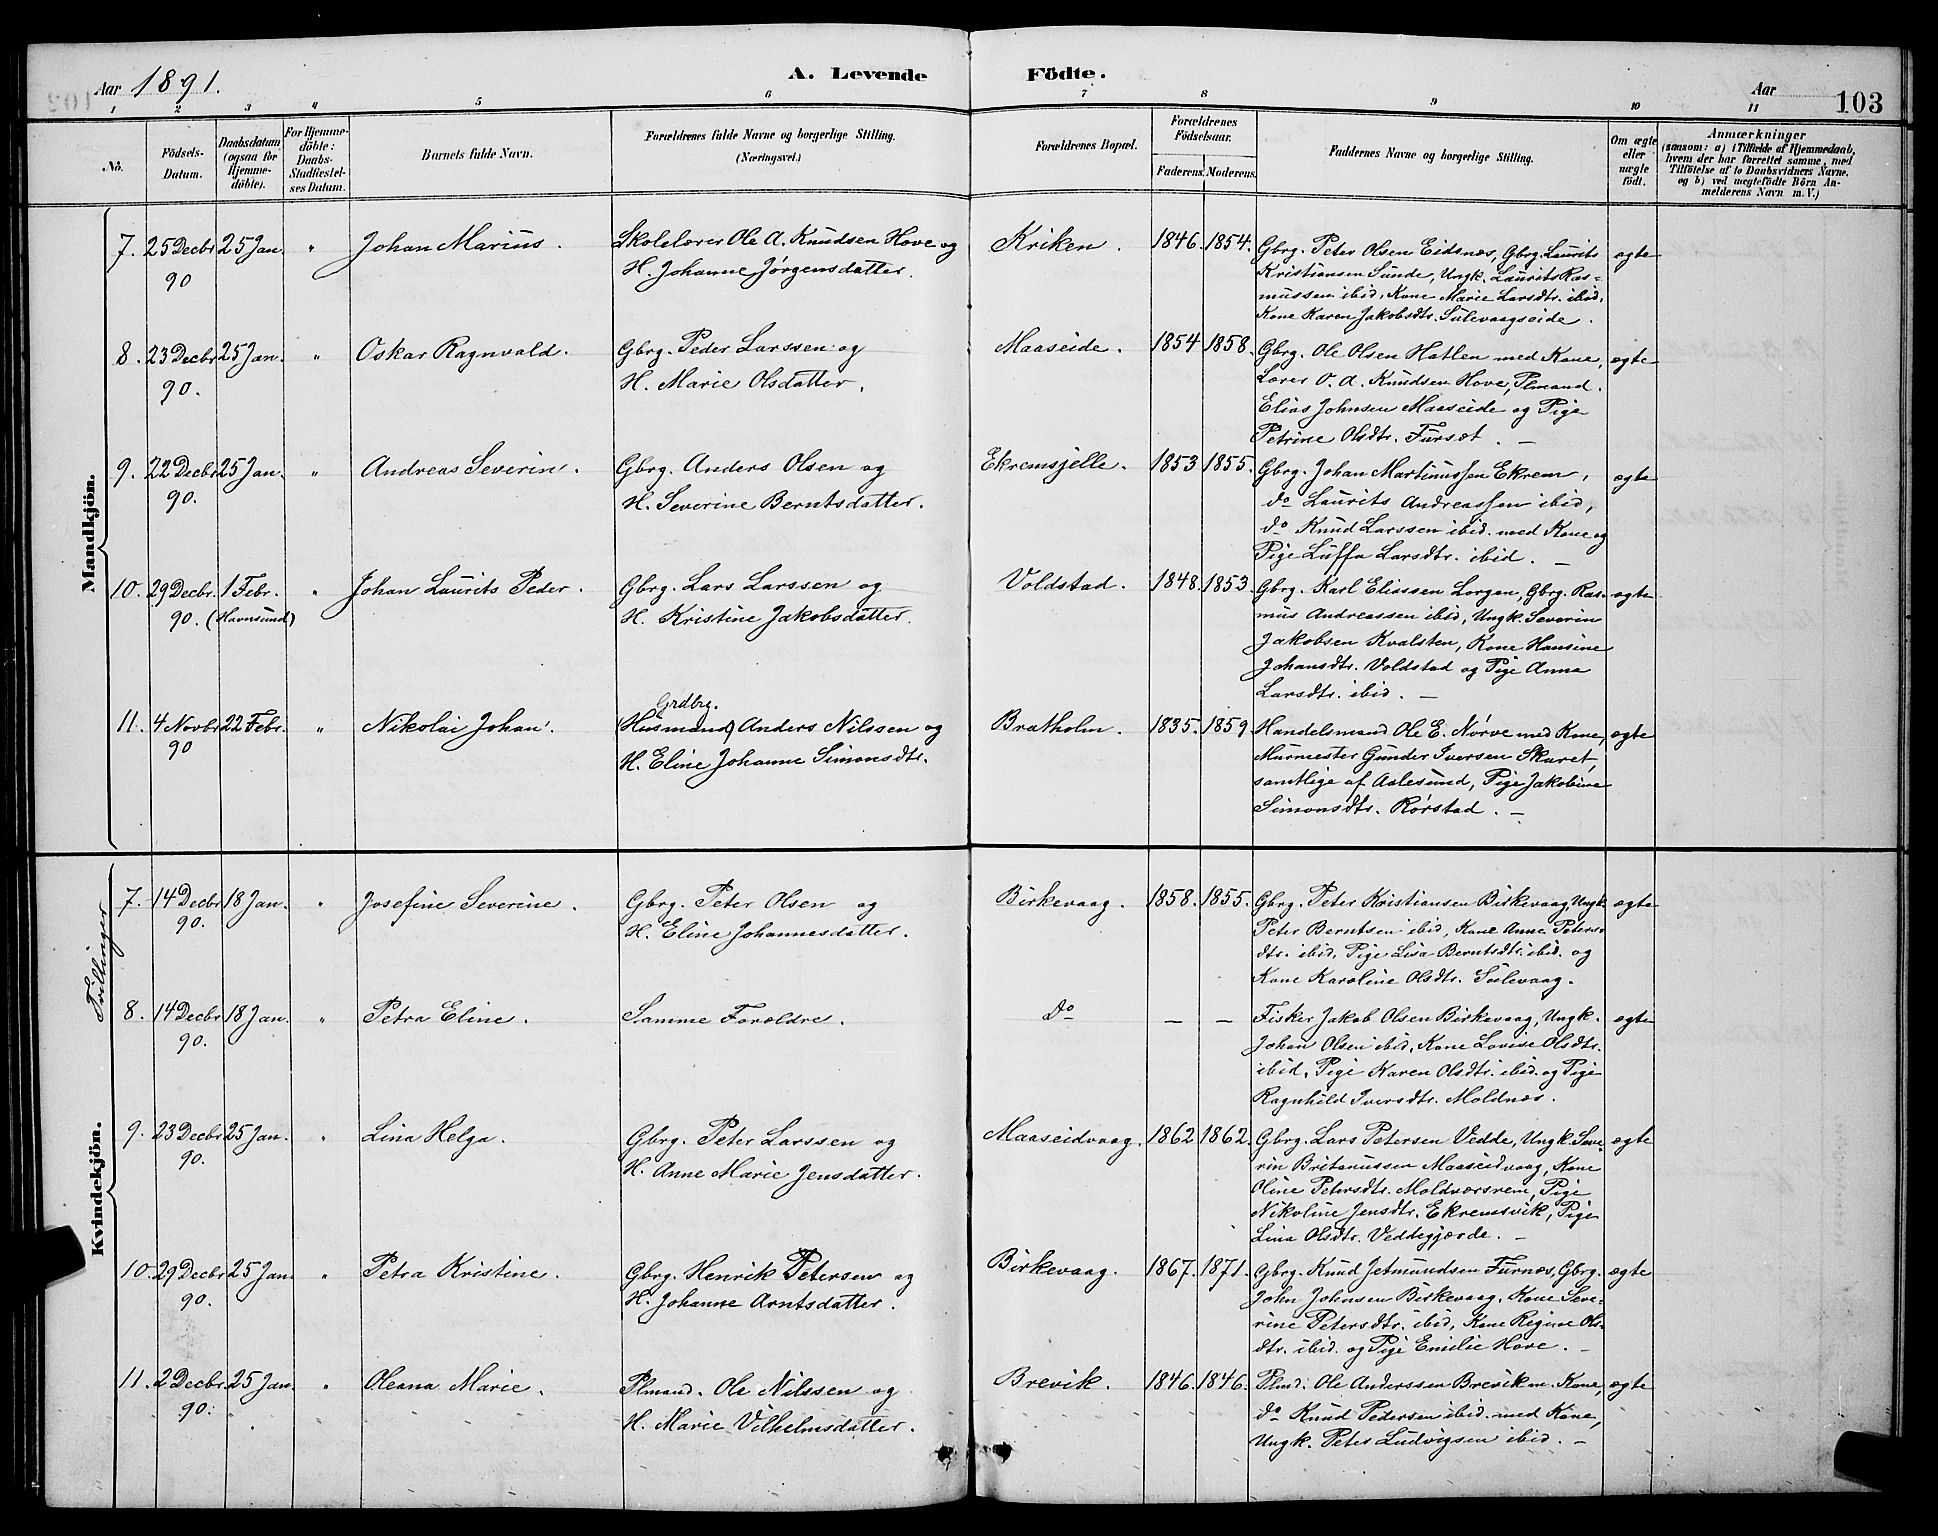 Aar 1891.
A. Levende Födte.
Aar
103
1 2 3 4 5 6 7 8 9 10 11
No.
Födsels-
Datum.
Daabsdatum
(ogsaa for
Hjemme-
döbte).
For Hjemme-
döbte:
Daabs-
Stadfæstel-
ses Datum.
Barnets fulde Navn.
Forældrenes fulde Navne og borgerlige Stilling.
(Næringsvei.)
Forældrenes Bopæl.
Forældrenes
Födselsaar.
Faderens. Moderens.
Faddernes Navne og borgerlige Stilling.
Om ægte
eller
uægte
födt.
Anmærkninger
(saasom: a) i Tilfælde af Hjemmedaab,
hvem der har forrettet samme, med
Tilföielse af to Daabsvidners Navne.
og b) ved uægtefödte Börn An-
melderens Navn m. V.)
Mandkjön.
7. 25 Decbr 25 Jan. " Johan Marius. Skolelærer Ole A. Knudsen Hove og Kriken. 1846. 1854. Gbrg. Peter Olsen Eidsnæs, Gbrg. Laurits ægte
90 H. Johanne Jørgensdatter. Kristiansen Sunde, Ungk. Laurits Ras-
mussen ibid, Kone Marie Larsdtr. ibid.
Kone Karen Jakobsdtr. Sulevaagseide.
8. 23 Decbr 25 Jan. " Oskar Ragnvald. Gbrg. Peder Larssen og Maaseide. 1854 1858. Gbrg. Ole Olsen Hatlen med Kone, ægte
90. H. Marie Olsdatter. Lærer O. A. Knudsen Hove, Plmand.
Elias Johnsen Maaseide og Pige
Petrine Olsdtr. Fursæt. –
9. 22 Decbr 25 Jan. " Andreas Severin. Gbrg. Anders Olsen og Ekremsjelle. 1853 1855. Gbrg. Johan Martinussen Ekrem, ægte
90. H. Severine Berntsdatter. do Laurits Andreassen ibid,
do Knud Larssen ibid. med Kone og
Pige Luffa Larsdtr. ibid. –
10. 29 Decbr. 1 Febr. " Johan Laurits Peder. Gbrg. Lars Larssen og Voldstad. 1848. 1853. Gbrg. Karl Eliassen Lorgen, Gbrg. Ras- ægte
90. (Havnsund) H. Kristine Jakobsdatter. mus Andreassen ibid, Ungk. Severin
Jakobsen Kvalsten, Kone Hansine
Johansdtr. Voldstad og Pige Anna
Larsdtr. ibid. –
Grdbrg.
11. 4 Novbr 22 Febr. " Nikolai Johan. (Husmand) Anders Nilssen og Bratholm. 1835. 1859. Handelsmand Ole E. Nørve med Kone, ægte
90 H. Eline Johanne Simonsdtr. Murmester Gunder Iversen Skaret,
samtlige af Aalesund, Pige Jakobine
Simonsdtr. Rørstad. –
Kvindekjön.
Tvillinger
7. 14 Decbr 18 Jan. " Josefine Severine. Gbrg. Peter Olsen og Birkevaag. 1858. 1855. Gbrg. Peter Kristiansen Birkevaag, Ungk. ægte
90. H. Eline Johannesdatter. Peter Berntsen ibid, Kone Anne Peters-
dtr. ibid, Pige Lisa Berntsdtr. ibid. og
Kone Karoline Olsdtr. Sulevaag.
8. 14 Decbr 18 Jan. " Petra Eline. Samme Forældre. do – – Fisker Jakob Olsen Birkevaag, Ungk. ægte
90. Johan Olsen ibid, Kone Lovise Olsdtr.
ibid, Pige Karen Olsdtr. ibid. og Pige
Ragnhild Iversdtr. Moldnæs.
9. 23 Decbr 25 Jan. " Lina Helga. Gbrg. Peter Larssen og Maaseidvaag. 1862 1862. Gbrg. Lars Petersen Vedde, Ungk. Seve- ægte
90. H. Anne Marie Jensdatter. rin Britanussen Maaseidvaag, Kone
Oline Petersdtr. Moldværsrem, Pige
Nikoline Jensdtr. Ekremsvik, Pige
Lina Olsdtr. Veddegjærde. –
10. 29 Decbr 25 Jan " Petra Kristine. Gbrg. Henrik Petersen og Birkevaag. 1867. 1871. Gbrg. Knud Jetmundsen Furnæs, Gbrg. ægte
90. H. Johanne Arntsdatter. John Johnsen Birkevaag, Kone Seve-
rine Petersdtr. ibid, Kone Regine Ols-
dtr. ibid. og Pige Emilie Hove. –
11. 2 Decbr. 25 Jan. " Oleana Marie. Plmand. Ole Nilssen og Brevik. 1846. 1846. Plmd. Ole Anderssen Brevik m. Kone, ægte
90. H. Marie Vilhelmsdatter. do Knud Pedersen ibid. med Kone,
Ungk. Peter Ludvigsen ibid. –